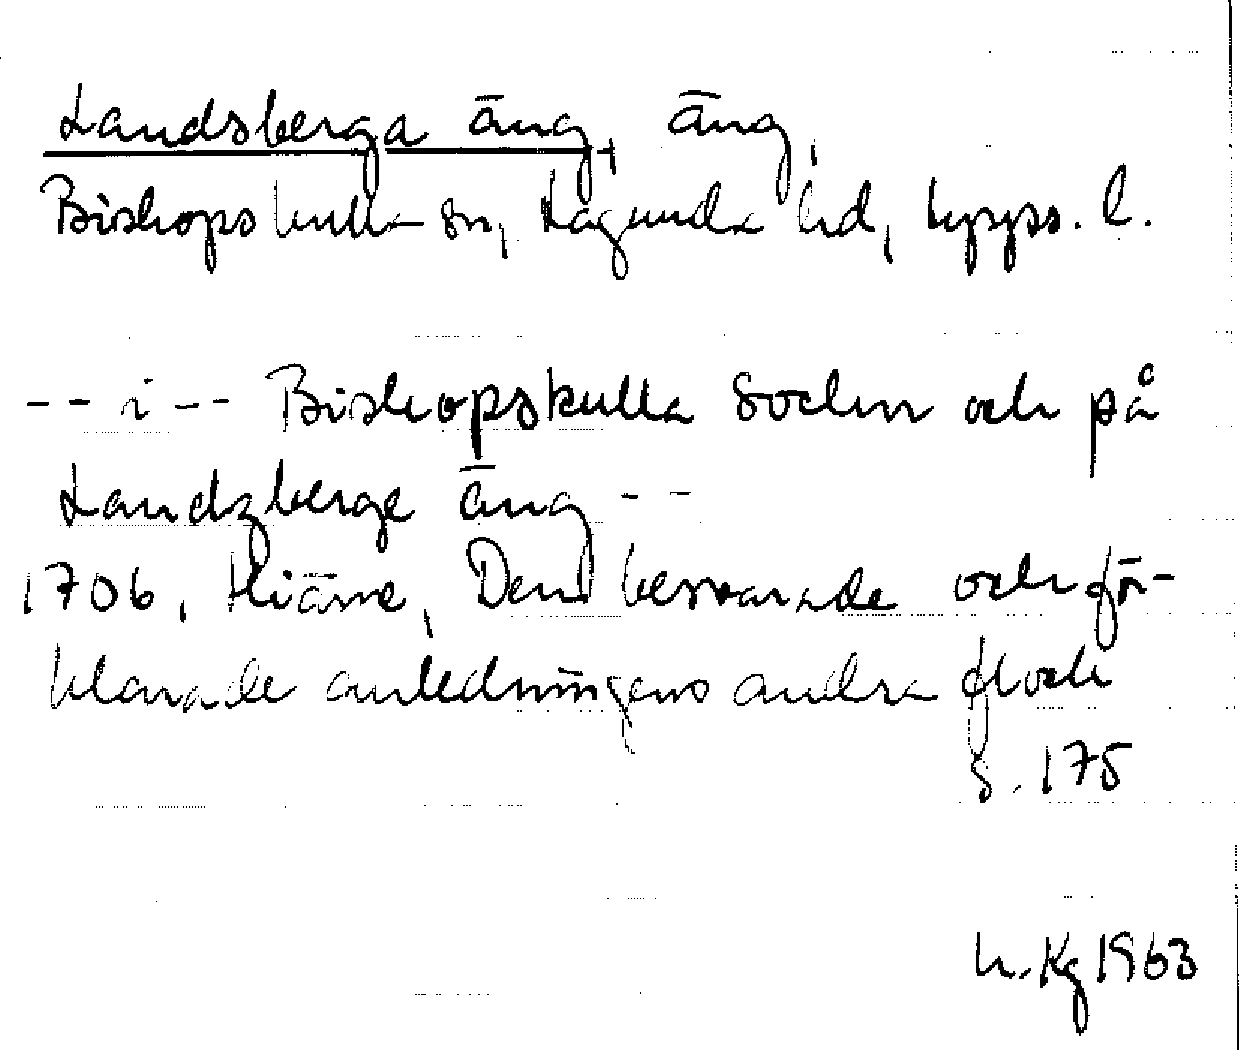 Landsberga äng, äng,
Biskopskulla sn, Lagunda hd, Upps. l.
-- i -- Biskopskulla Sochn och på
Landzberge äng --
1706, Hiärne, Den besvarade och för-
klarade anledningens andra flock
s. 175
h. Kg 1963